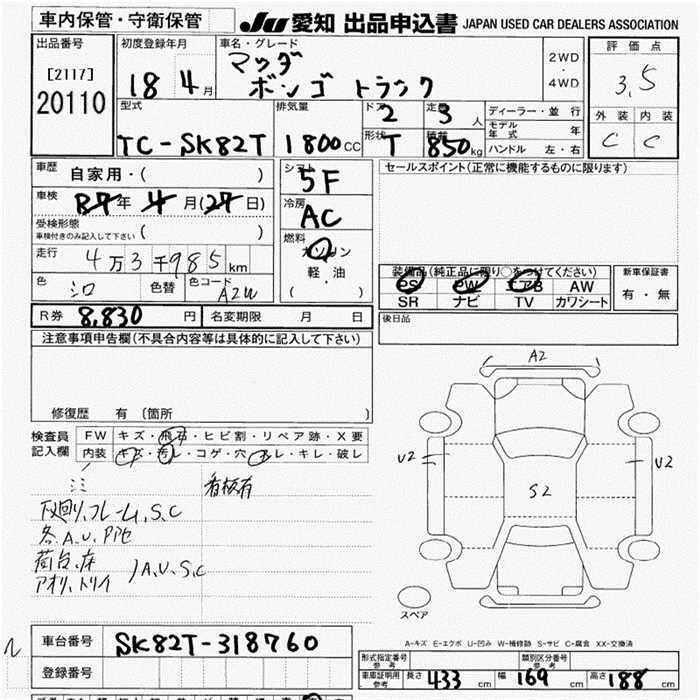 車内保管・守衛保管
JU 愛知 出品申込書 JAPAN USED CAR DEALERS ASSOCIATION
出品番号
[2117]
20110
初度登録年月
18 4月
車名・グレード
マツダ
ボンゴ トラック
2WD
・
4WD
評価点
3.5
外装 内装
C C
型式
TC-SK82T
排気量
1800CC
ドア
2
定員
3人
形状
T
積載
850kg
ディーラー・並行
モデル年式 年
ハンドル 左・右
車歴
自家用・( )
車検
R7年 4月(27日)
受検形態
車検付きのみ記入して下さい ( )
走行
4万3千985km
色
シロ
色替
色コード
A2W
シフト
5F
冷房
AC
燃料
ガソリン
軽・油
( )
セールスポイント(正常に機能するものに限ります)
装備品(純正品に限り○をつけてください)
PS PW エアB AW
SR ナビ TV カワシート
新車保証書
有・無
R券 8,830 円
名変期限 月 日
後日品
注意事項申告欄(不具合内容等は具体的に記入して下さい)
修復歴 有 〔箇所 〕
検査員
記入欄
FW キズ・飛石・ヒビ割・リペア跡・X要
内装 キズ・汚レ・コゲ・穴・スレ・キレ・破レ
看板有
下廻リ、フレーム、S.C
各.A.U.
荷台、床
アオリ、トリイ
A.U.S.C
A2
U2
U2
S2
A2
スペア
A-キズ E-エクボ U-凹み W-補修跡 S-サビ C-腐食 XX-交換済
車台番号 SK82T-318760
登録番号
形式指定番号
参考
類別区分番号
参考
車庫証明用
参考
長さ 433cm 幅 169cm 高さ 188cm